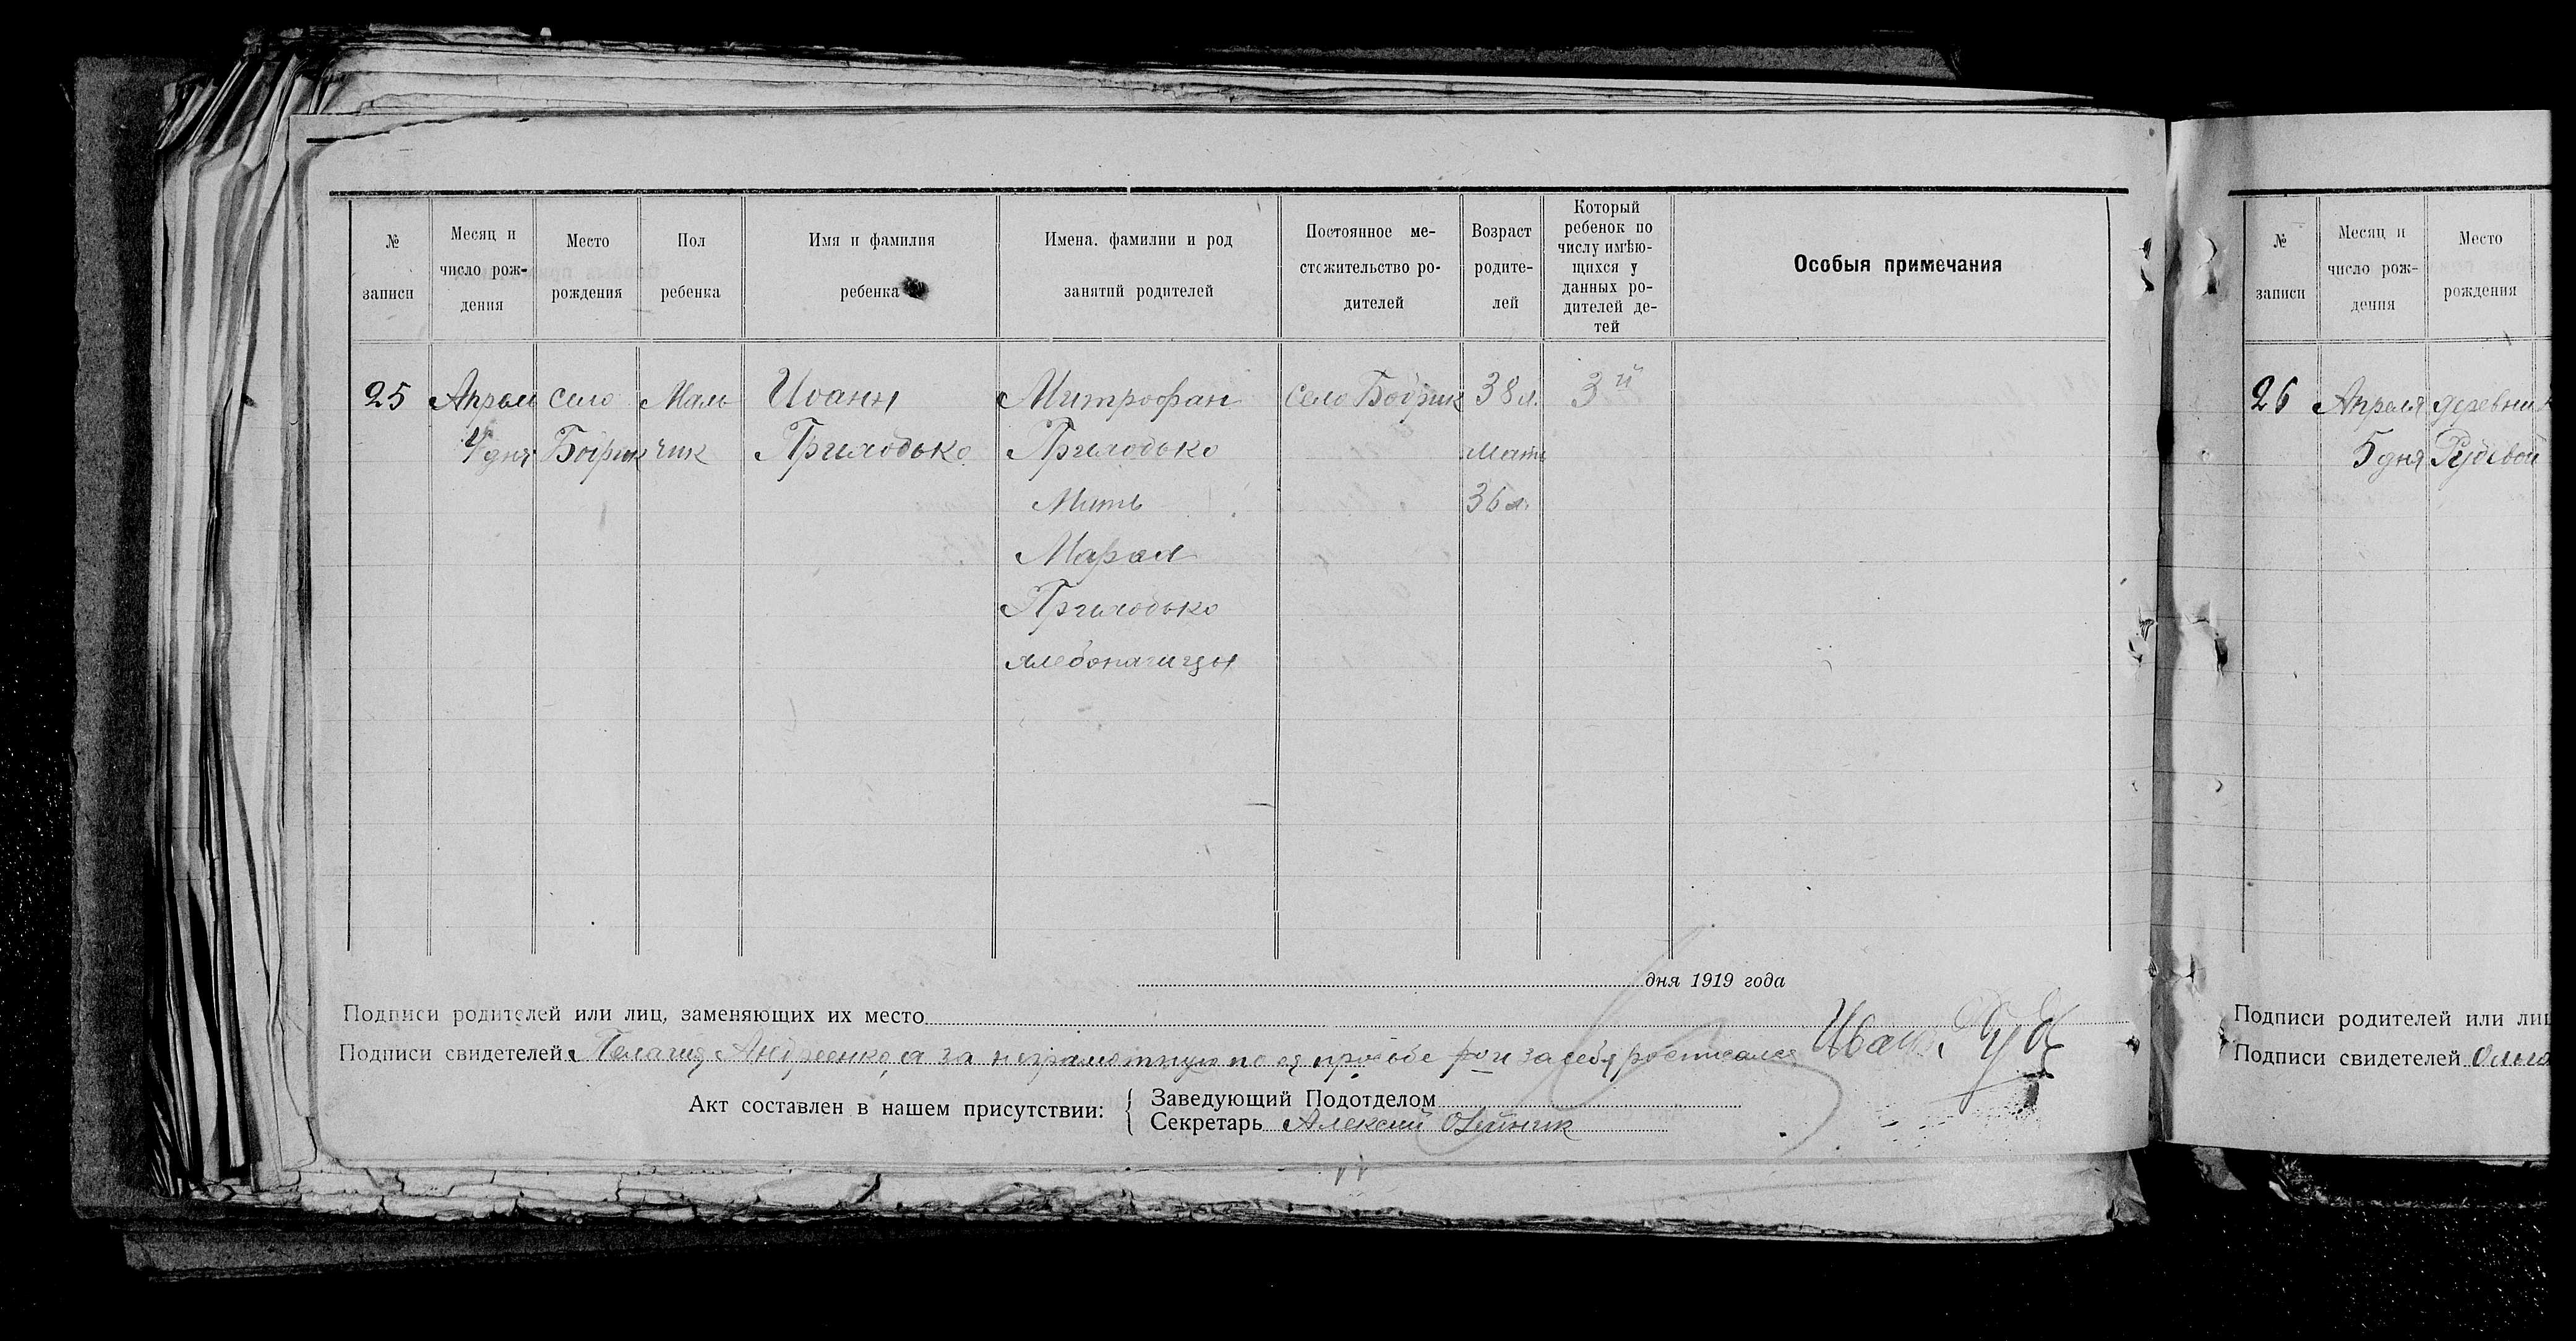 № записи
Месяц и число рож-дения
Место рождения
Пол ребенка
Имя и фамилия ребенка
Имена. фамилии и род занятий родителей
Постоянное ме-стожительство ро-дителей
Возраст родите-лей
Который ребенок по числу имѣю-щихся у данных ро-дителей де-тей
Особыя примечания
25 Апрел село Маль Иоанн Митрофан село Бобрик 38 л. 3й
4 дня Бобрик чик Приходько Приходько мать
Мать 36 л.
Мария
Приходько
хлебопашцы
дня 1919 года
Подписи родителей или лиц, заменяющих их место
Подписи свидетелей Пелагия Андреенко, а за неграмотную по ея просьбе и за себя росписался Иван
Акт составлен в нашем присутствии:
Заведующий Подотделом
Секретарь Алексей Олейник
№ записи
Месяц и число рож-дения
Место рождения
26 Апреля деревни
5 дня Рудевой
Подписи родителей или лиц
Подписи свидетелей Ольга